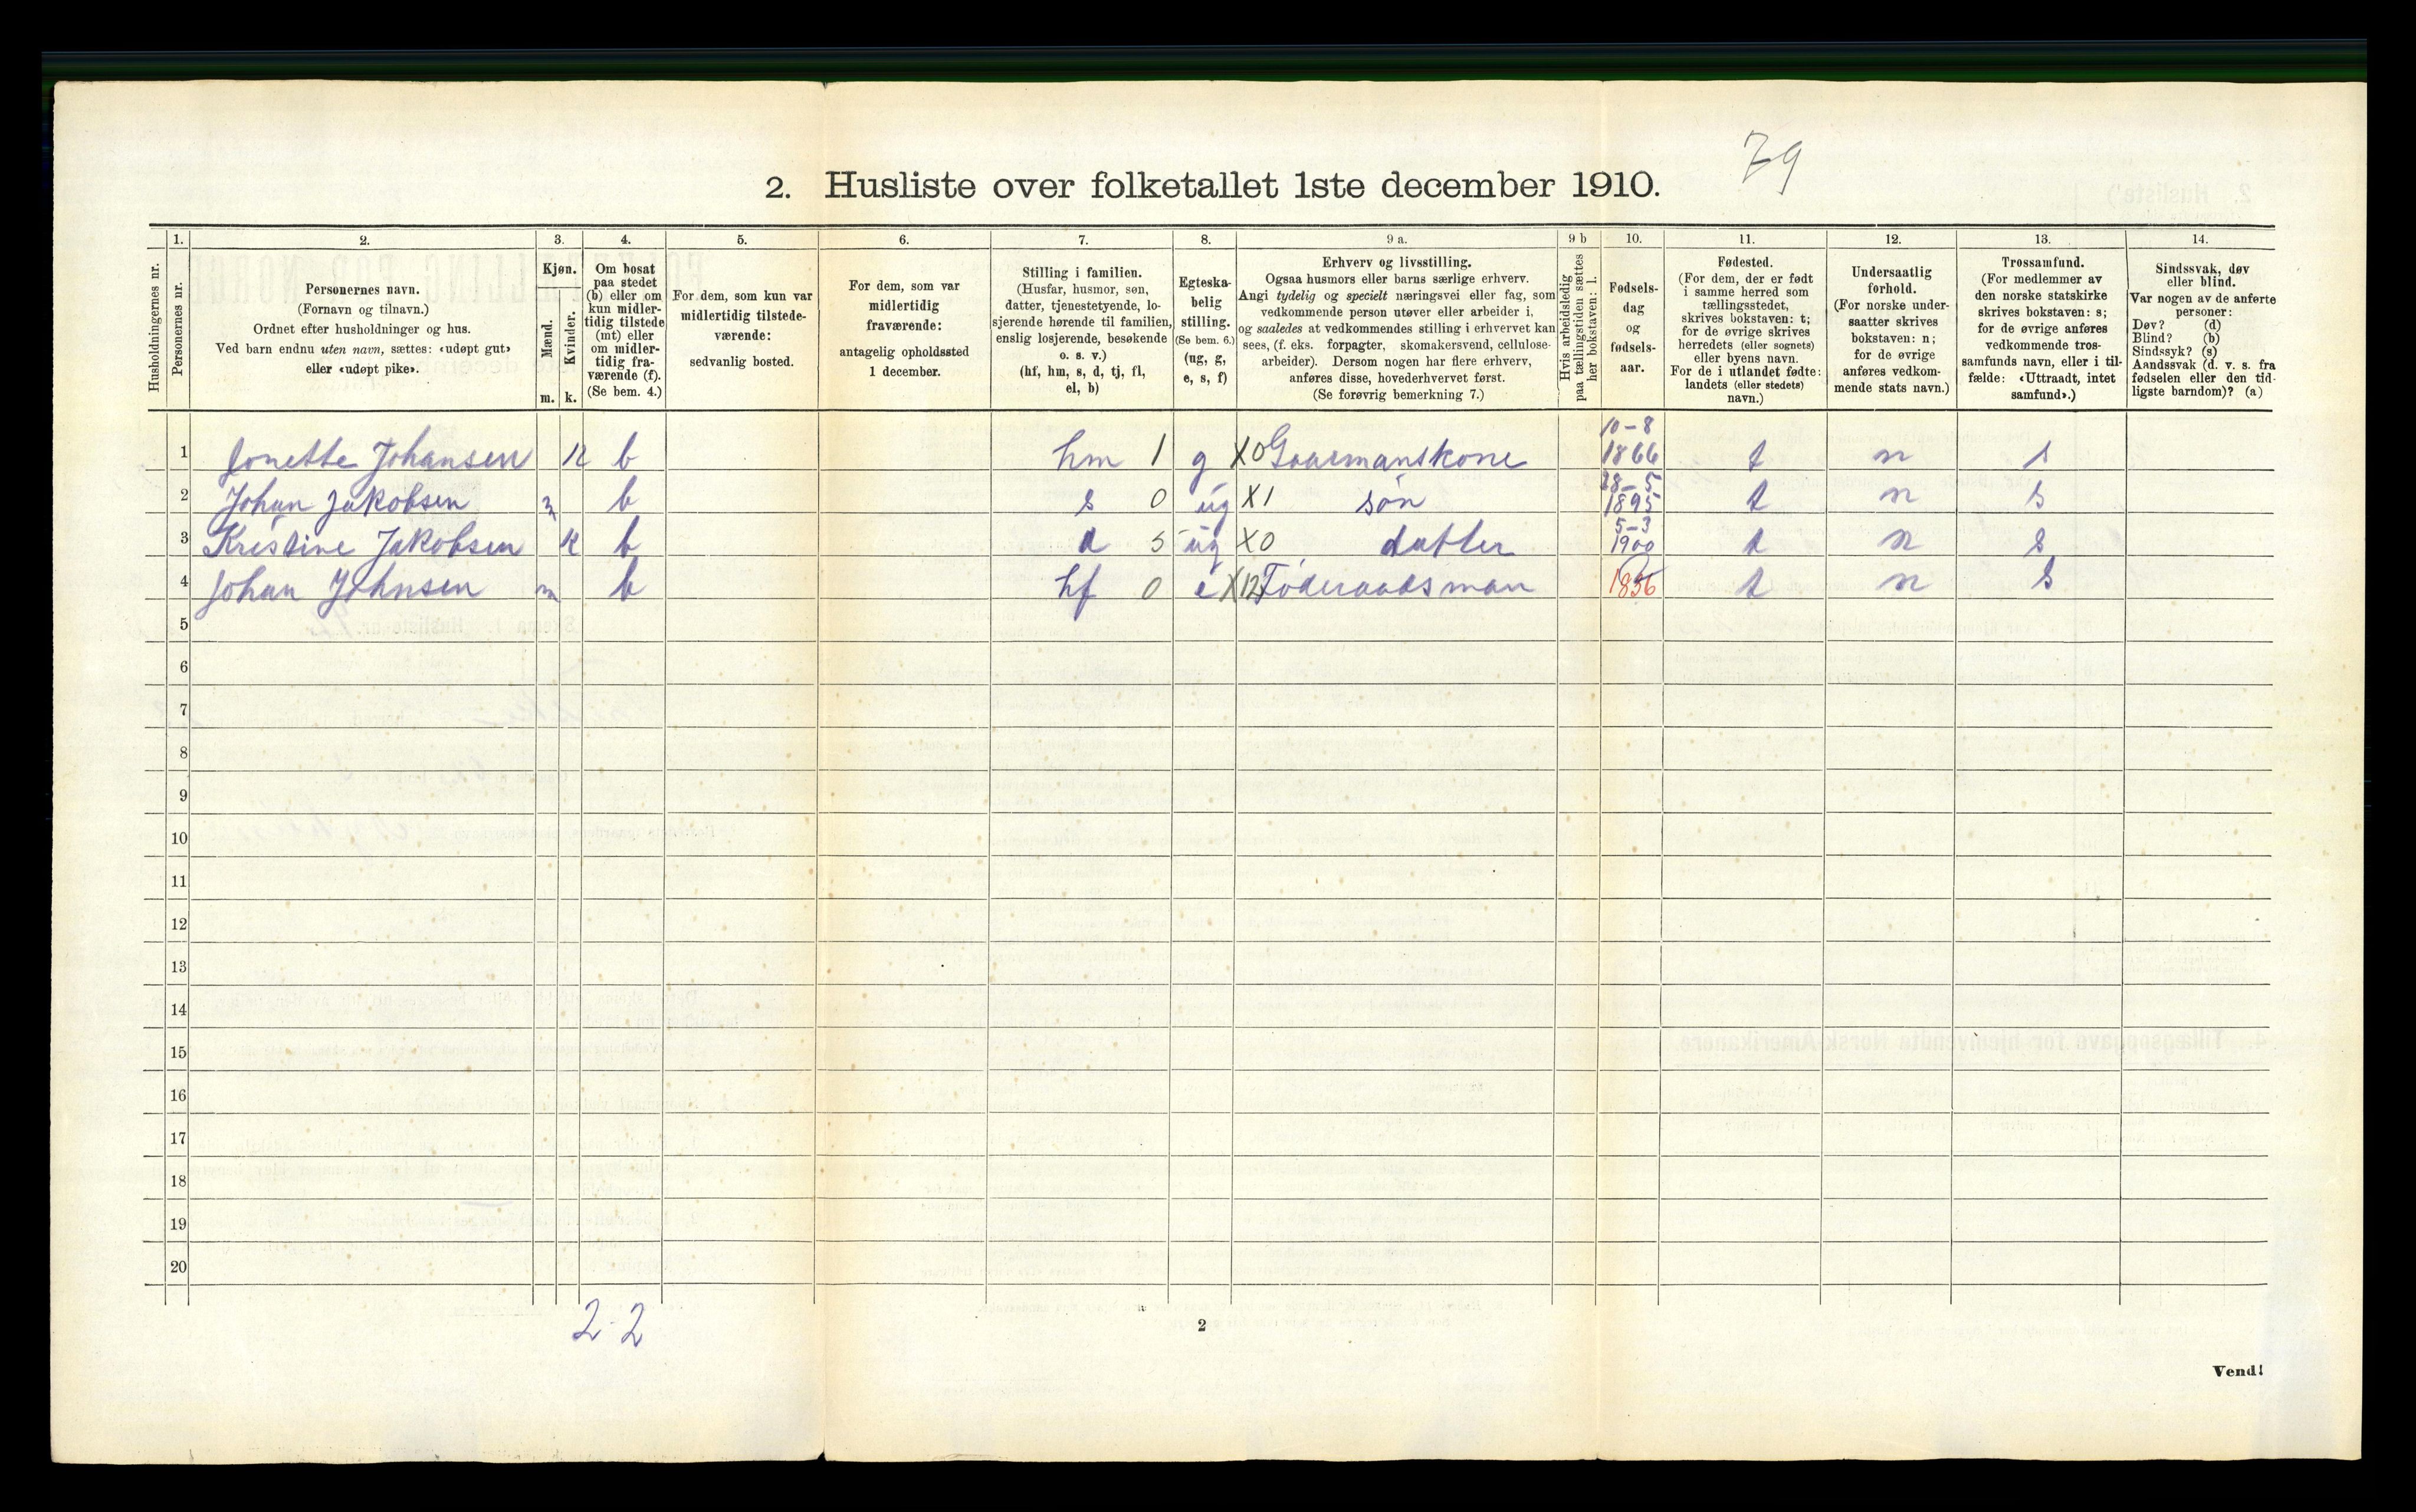 79
2. Husliste over folketallet 1ste december 1910.
Husholdningernes nr.
1.
Personernes nr.
2.
Personernes navn.
(Fornavn og tilnavn.)
Ordnet efter husholdninger og hus.
Ved barn endnu uten navn, sættes: «udøpt gut»
eller «udøpt pike».
3.
Kjøn.
Mænd.
Kvinder.
m. k.
4.
Om bosat
paa stedet
(b) eller om
kun midler-
tidig tilstede
(mt) eller
om midler-
tidig fra-
værende (f).
(Se bem. 4.)
5.
For dem, som kun var
midlertidig tilstede-
værende:
sedvanlig bosted.
6.
For dem, som var
midlertidig
fraværende:
antagelig opholdssted
1 december.
7.
Stilling i familien.
(Husfar, husmor, søn,
datter, tjenestetyende, lo-
sjerende hørende til familien,
enslig losjerende, besøkende
o. s. v.)
(hf, hm, s, d, tj, fl,
el, b)
8.
Egteska-
belig
stilling.
(Se bem. 6.)
(ug, g,
e, s, f)
9 a.
Erhverv og livsstilling.
Ogsaa husmors eller barns særlige erhverv.
Angi tydelig og specielt næringsvei eller fag, som
vedkommende person utøver eller arbeider i,
og saaledes at vedkommendes stilling i erhvervet kan
sees, (f. eks. forpagter, skomakersvend, cellulose-
arbeider). Dersom nogen har flere erhverv,
anføres disse, hovederhvervet først.
(Se forøvrig bemerkning 7.)
9 b
Hvis arbeidsledig
paa tællingstiden sættes
her bokstaven: l.
10.
Fødsels-
dag
og
fødsels-
aar.
11.
Fødested.
(For dem, der er født
i samme herred som
tællingsstedet,
skrives bokstaven: t;
for de øvrige skrives
herredets (eller sognets)
eller byens navn.
For de i utlandet fødte:
landets (eller stedets)
navn.)
12.
Undersaatlig
forhold.
(For norske under-
saatter skrives
bokstaven: n;
for de øvrige
anføres vedkom-
mende stats navn.)
13.
Trossamfund.
(For medlemmer av
den norske statskirke
skrives bokstaven: s;
for de øvrige anføres
vedkommende tros-
samfunds navn, eller i til-
fælde: «Uttraadt, intet
samfund».)
14.
Sindssvak, døv
eller blind.
Var nogen av de anførte
personer:
Døv? (d)
Blind? (b)
Sindssyk? (s)
Aandssvak (d. v. s. fra
fødselen eller den tid-
ligste barndom)? (a)
1 Jonette Johansen k b hm 1 g X0 Gaarmanskone 10-8 1866 t n s
2 Johan Jakobsen m b s 0 ug X1 søn 28-5 1895 t n s
3 Kristine Jakobsen k b d 5 ug X0 datter 5-3 1900 t n s
4 Johan Johnsen m b hf 0 e X12 Føderaadsman t n s
5
6
7
8
9
10
11
12
13
14
15
16
17
18
19
20
2-2
2
Vend!